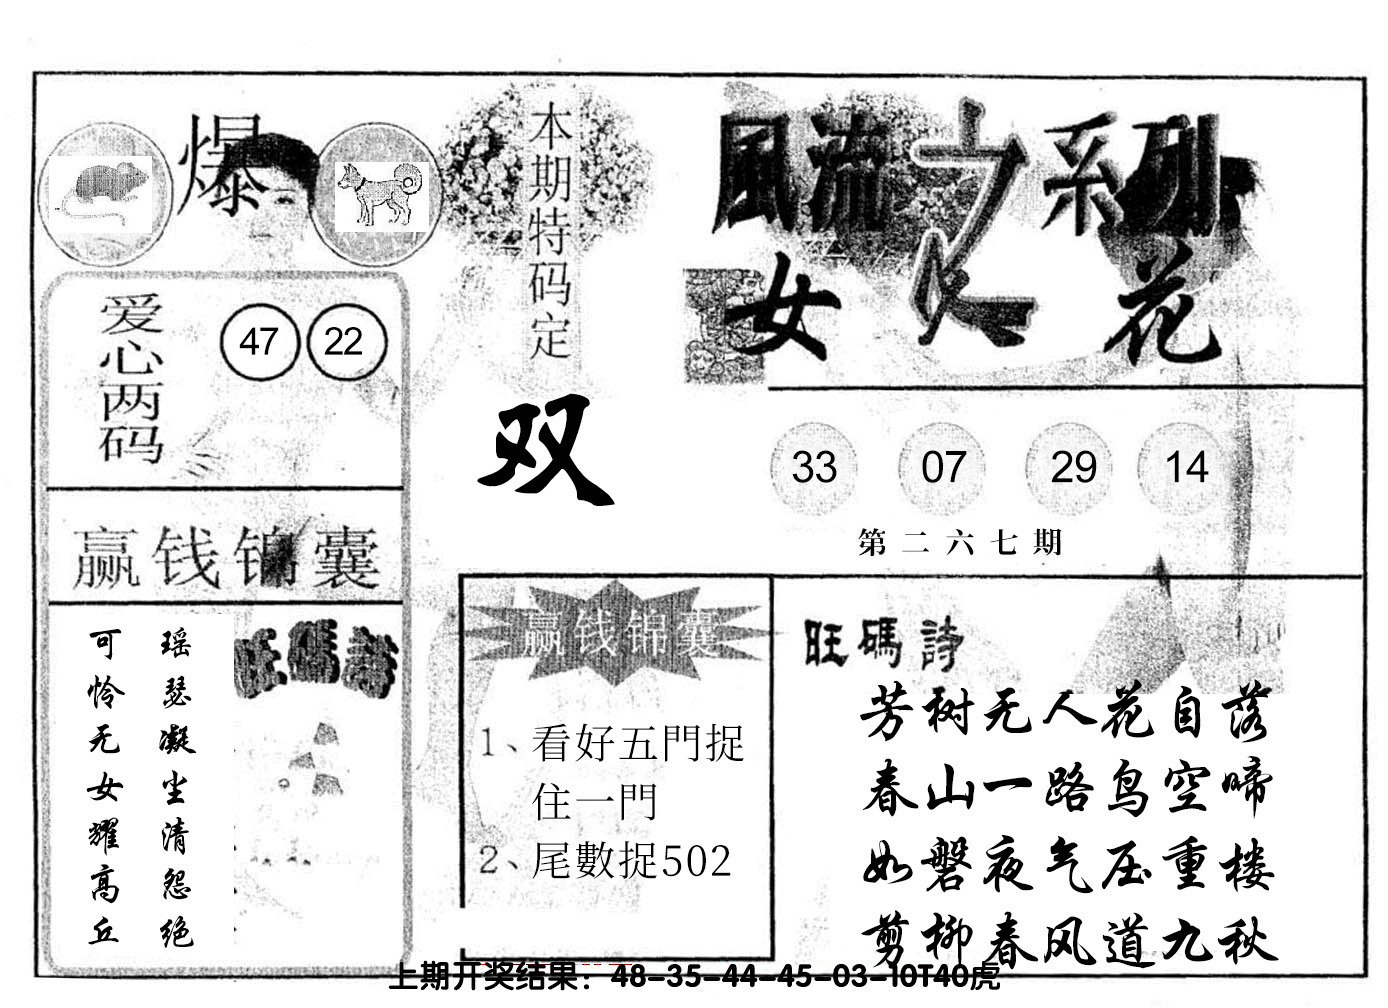 爆
本期特码定
双
爱心两码
47 22
赢钱锦囊
瑶瑟凝尘清怨绝
可怜无女耀高丘
旺碼詩
風流之系列
女人花
33 07 29 14
第二六七期
赢钱锦囊
1、看好五門捉
住一門
2、尾數捉502
旺碼詩
芳树无人花自落
春山一路鸟空啼
如磐夜气压重楼
剪柳春风道九秋
上期开奖结果：48-35-44-45-03-10T40虎